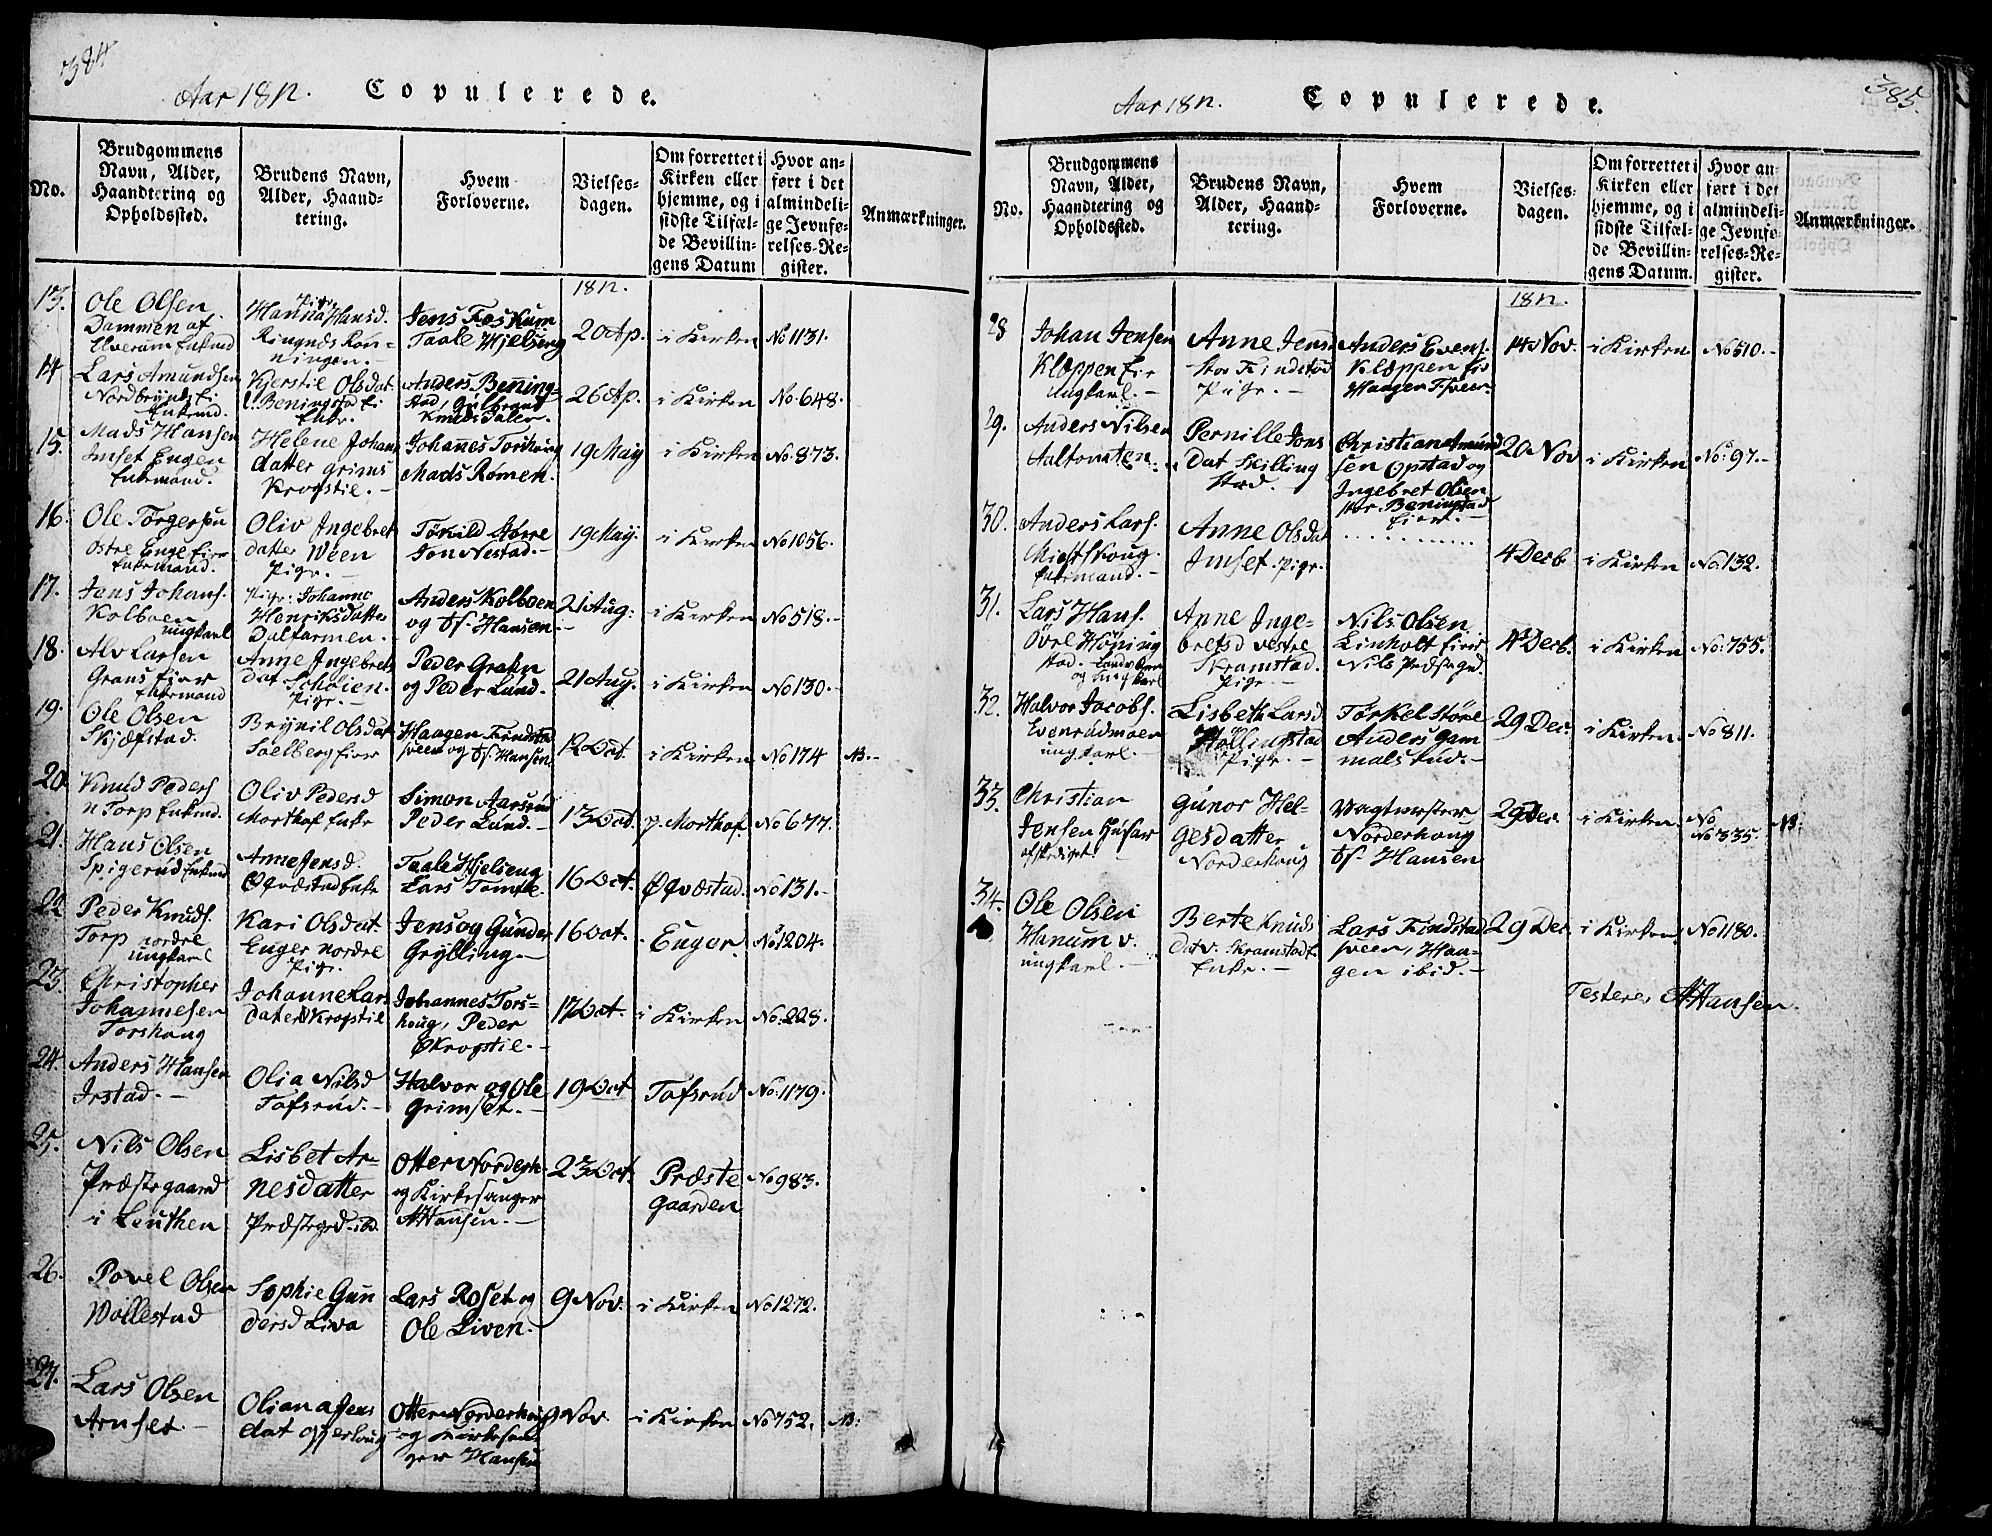 384
Aar 1817. Copulerede.
No.
Brudgommens
Navn, Alder,
Haandtering og
Opholdssted.
Brudens Navn,
Alder, Haand-
tering.
Hvem
Forloverne.
Vielses-
dagen.
Om forrettet i
Kirken eller
hjemme, og i
sidste Tilfæl-
de Bevillin-
gens Datum
Hvor an-
ført i det
almindeli-
ge Jevnfø-
relses-Re-
gister.
Anmærkninger.
1817.
13.
Ole Olsen
Dammen af
Elverum Enkmd
Pige
Hanna Hansd.
Ringnæs Røn-
ningen.
Jens Fæskum
Taale Hjelseng
20 Ap.
i Kirken
No 1131.
14
Lars Amundsen
Nordbrynds Ei
Enkmd.
Kjerstie Olsdat
Beningstad Ei
Enke.
Anders Bening-
stad, Gulbrand
Knuds Saler.
26 Ap.
i Kirken
No. 648.
15.
Mads Hansen
Imset Engen
Enkemand.
Helene Johans
datter Grims
Krogstie.
Johannes Torshoug
Mads Romen.
19 May
i Kirken
No. 873.
16.
Ole Torgersen
Østre Enge Eier
Enkemand.
Oliv Ingebret
datter Ween
Pige.
Tørkild Støre
Jon Nestad.
19 May.
i Kirken
No 1056.
17.
Jens Johans.
Kolboen
ungkarl
Pige: Johanne
Henriksdatter
Dalfarmen.
Anders Kolboen
og H. Hansen.
21 Aug:
i Kirken
No 518.
18.
Alv Larsen
Graus Eier
Enkemand
Anne Ingebrets
dat Schøien.
Pige.
Peder Grahn
og Peder Lund.
21 Aug.
i Kirken
No 130.
19.
Ole Olsen
Skjæfstad.
Brynil Olsdat
Saelberg Eier
Haagen Findstad
sveen og H. Hansen.
12 Oct.
i Kirken
No 174
NB.
20
Knud Peders
n Torp Enkmd.
Oliv Pedersd
Morthof Enke
Simon Aarsrud
Peder Lund.
13 Oct.
p. Morthof.
No 677.
21.
Hans Olsen
Spigerud Enkmd
Anne Jensd.
Øqvæstad Enke
Taale Hjelseng
Lars Tomte.
16 Oct.
Øqvæstad.
No 131.
22
Peder Knuds.
Torp nordre
ungkarl
Kari Olsdat.
Enger nordre
Pige.
Jens og Gunder
Grytling.
16 Oct.
Enger.
No 1204.
23.
Christopher
Johannesen
Torshoug
Johanne Lars
datter Ø Krogstie
Johannes Tors-
houg, Peder
Ø Krogstie.
17 Oct.
i Kirken
No. 228.
24.
Anders Hansen
Irstad.
Olia Nilsd
Tofsrud.
Halvor og Ole
Grimset.
19 Oct
Tofsrud
No. 1179.
25.
Nils Olsen
Præstegaard
i Leuthen
Lisbet Ar-
nesdatter
Præstegrd ibd.
Otter Norderh.
og Kirkesanger
A Hansen.
23 Oct.
Præste
gaarden
No 983.
26.
Povel Olsen
Wollestad
Sophie Gun
dersd Liva
Lars Roset og
Ole Liven.
9 Nov.
i Kirken
No 1272.
27.
Lars Olsen
Arnset.
Oliana Jens
dat Opperhoug
Otter Norderhoug
og Kirkesan-
ger Hansen
9 Nov
i Kirken
No 752.
NB:
385.
Aar 1817. Copulerede.
No.
Brudgommens
Navn, Alder,
Haandtering og
Opholdssted.
Brudens Navn,
Alder, Haand-
tering.
Hvem
Forloverne.
Vielses-
dagen.
Om forrettet i
Kirken eller
hjemme, og i
sidste Tilfæl-
de Bevillin-
gens Datum.
Hvor an-
ført i det
almindeli-
ge Jevnfø-
relses-Re-
gister.
Anmærkninger.
1817.
28
Johan Jensen
Klæppen Eie
Ungkarl.
Anne Jensd
stor Findstad
Pige.
Anders Evens.
Klæppen Eie
Haagen Fsveen.
14 Nov.
i Kirken
No 510.
29.
Anders Nilsen
Aaltomten.
Pernille Jons
Dat Skilling
stad.
Christian Amund
sen Opstad og
Ingebret Olsen
stor Beningstad
Eier.
20 Nov
i Kirken
No: 97.
30.
Anders Lars.
Mistskoug.
Enkemand.
Anne Olsdat
Imset. Pige.
............
4 Decb.
i Kirken
No. 132.
31.
Lars Hans.
Øvre Høning
stad. Landværn
og ungkarl
Anne Inge-
bretsd vestre
Skramstad.
Pige.
Nils Olsen
Linholt Eier
Nils Præstegrd.
4 Decb.
i Kirken
No: 755.
32.
Halvor Jacobs.
Evenrudmoen
ungkarl.
Lisbeth Larsd
Hollingstad
Pige.
Tørkel Støre
Anders Gam
melskud.
29 Der.
i Kirken.
No 811.
33.
Christian
Jensen Husar
afskediget.
Gunor Hel-
gesdatter
Norderhoug
Vagtmester
Norderhoug
H. Hansen
29 Der.
i Kirken.
No
No 335.
NB:
34.
Ole Olsen
Hanum v.
ungkarl.
Berte Knuds
dat v. Kramstad
Enke.
Lars Findstad
sveen, Haa-
gen ibid.
29 Der.
i Kirken.
No 1180.
Testerer A Hansen.